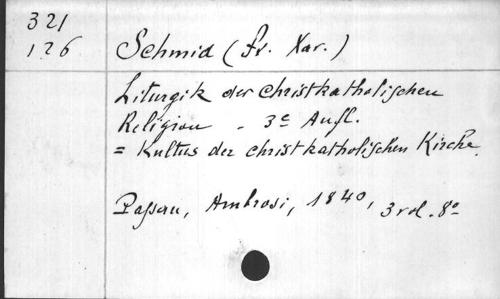 321
126
Schmid (Fr. Xav.)
Liturgik der christkatholischen
Religion. 3e Aufl.
= Kultus der christkatholischen Kirche.
Passau, Ambrosi, 1840, 3 vol. 8°